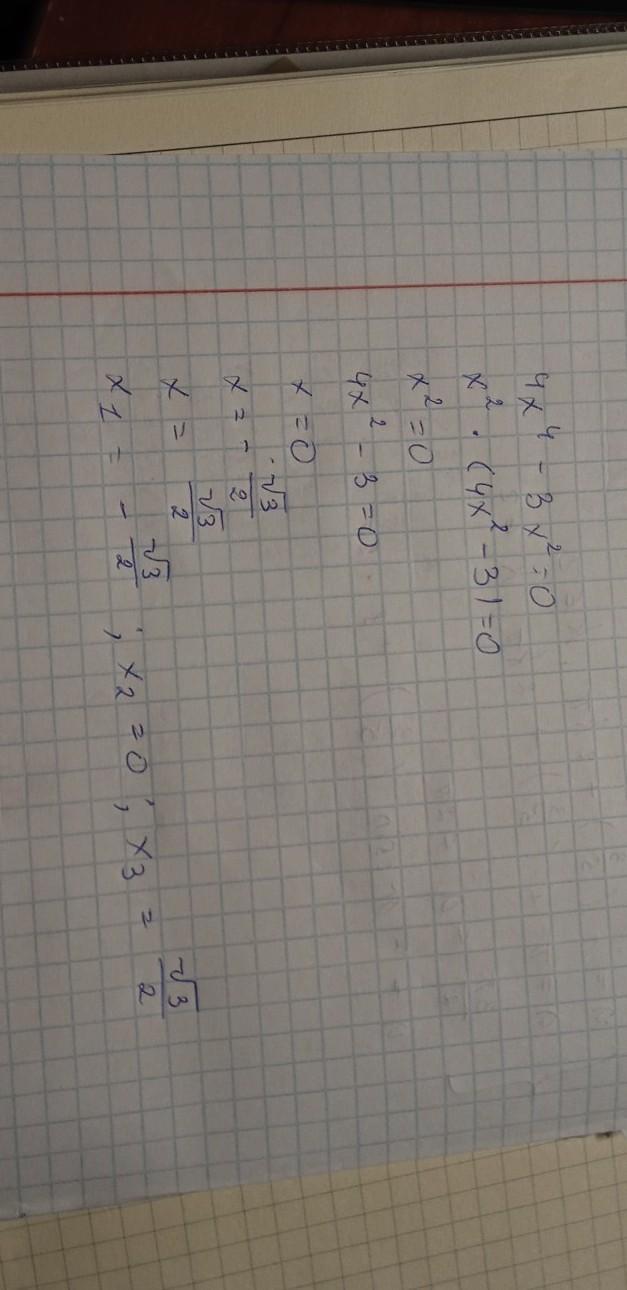 4x⁴ - 3x² = 0
x² · (4x² - 3) = 0
x² = 0
4x² - 3 = 0
x = 0
x = - √3/2
x = √3/2
x1 = - √3/2 ; x2 = 0 ; x3 = √3/2